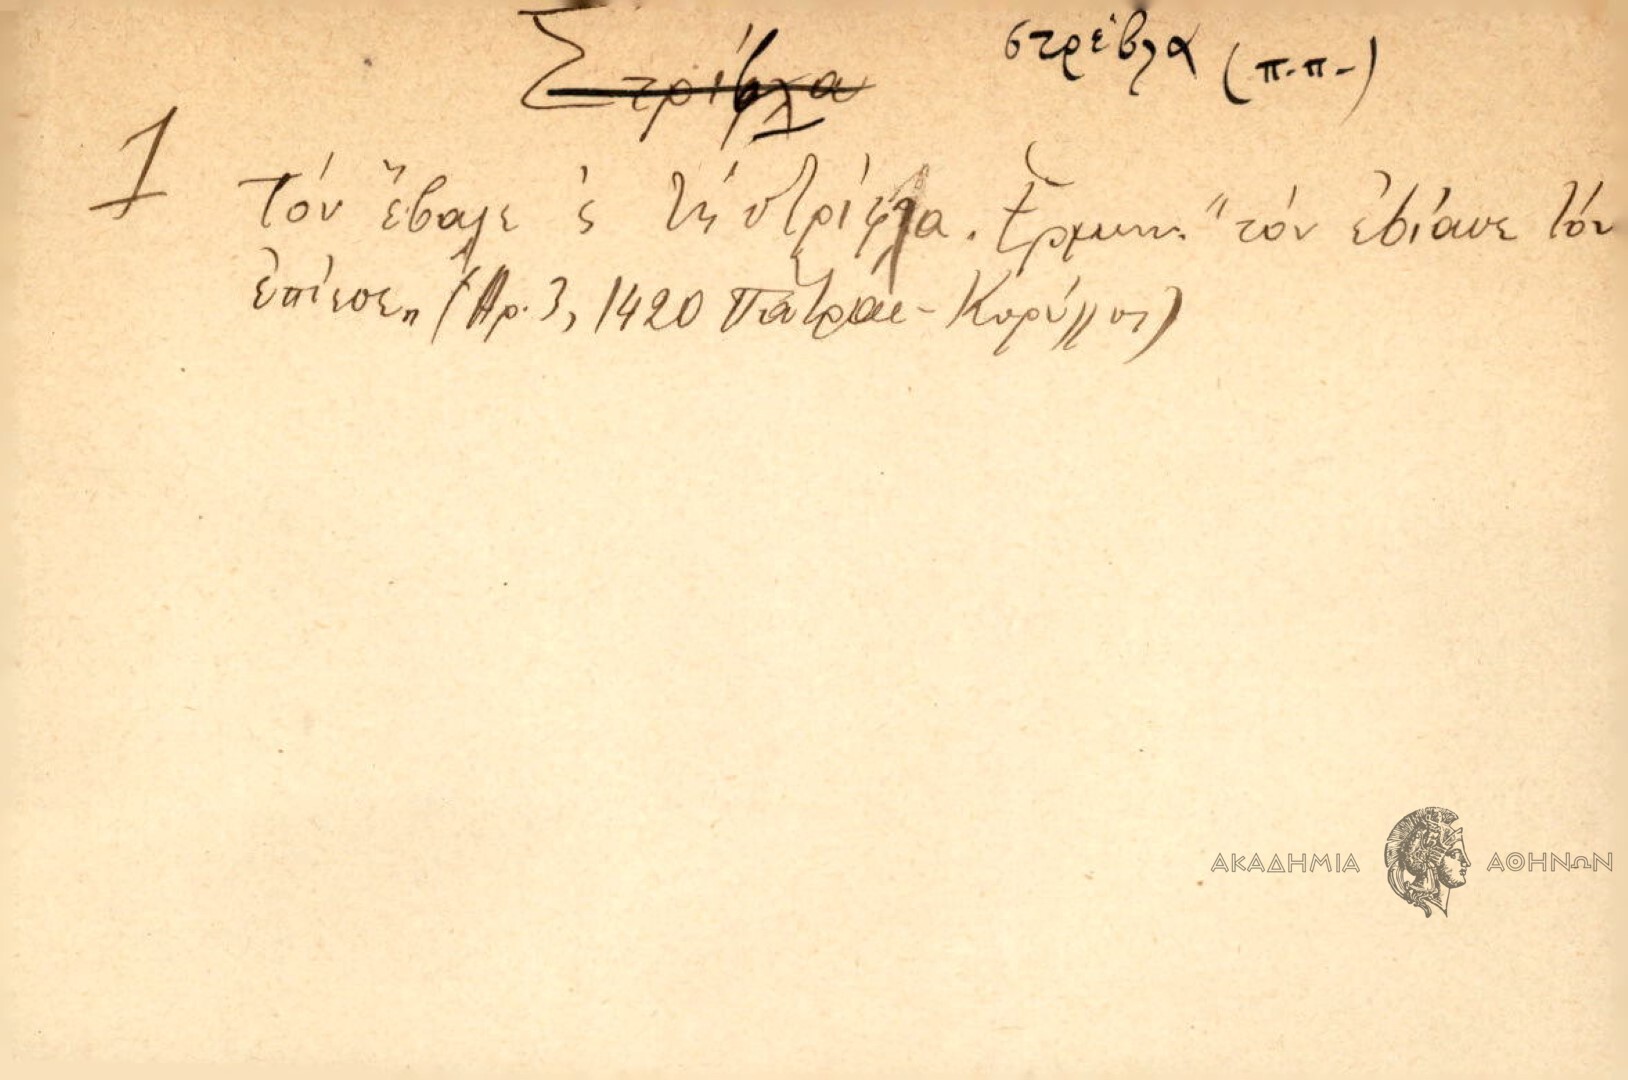 Στρίβλα στρέβλα (π.π.)
1 Τόν ἔβαλε ς τή στρίφλα. Ἑρμην. "τόν ἐβίασε τόν
ἐπίεσε" (Ἀρ. 3, 1420 Πάτραι - Κορύλλος)
ΑΚΑΔΗΜΙΑ ΑΘΗΝΩΝ